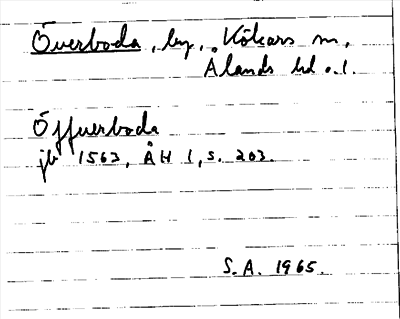 Överboda, by, Kökars sn,
Ålands hd o. l.
Öffuerboda
jb 1563, ÅH 1, s. 203.
S. A. 1965.